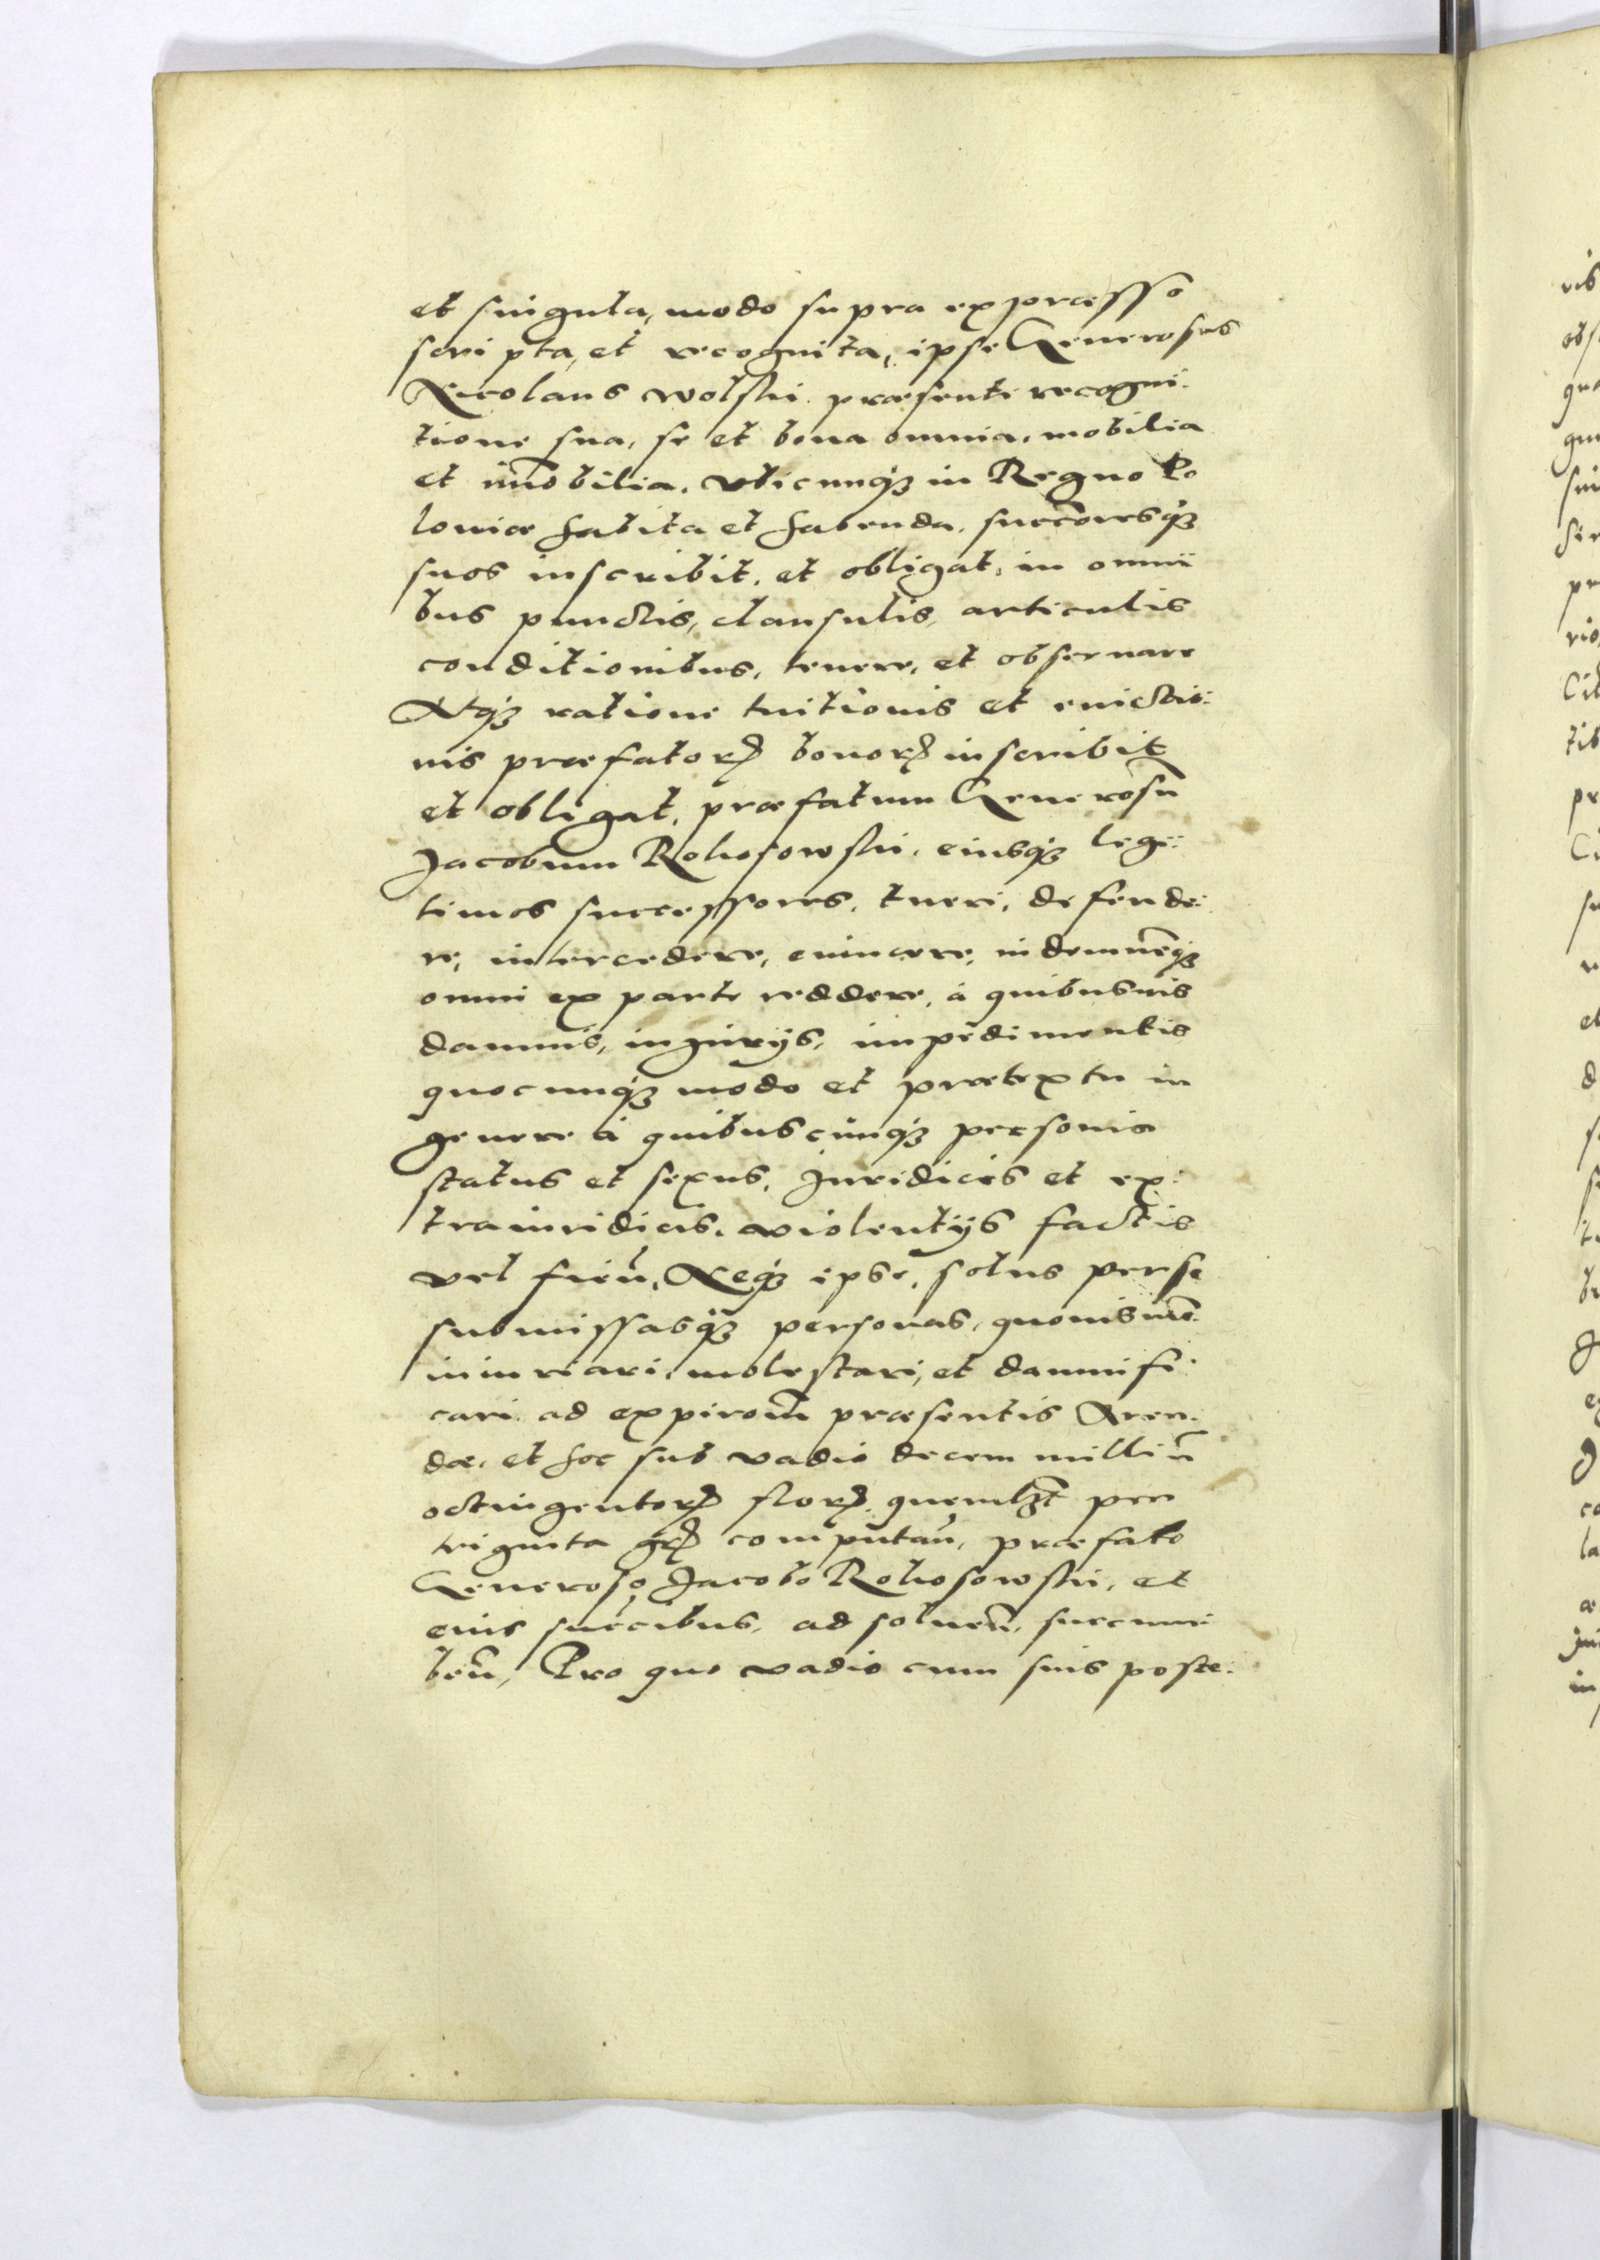 et singula, modo supra expræsso
scripta, et recognita, ipse Generosus
Nicolaus Wolski præsenti recogni:
tione sua, se et bona omnia, mobilia
et im̃obilia, vbicunq3 in Regno Po
loniæ habita et habenda, succõresq3
suos inscribit, et obligat, in omni
bus punctis, clausulis, articulis
conditionibus, tenere, et obseruare
Atq3 ratione tuitionis et euictio:
nis præfatorꝝ bonorꝝ inscribit
et obligat, præfatum Generosũ
Jacobum Rokosowski, eiusq3 legi:
timos successores, tueri, defende:
re, intercedere, euincere, indemnẽq3
omni ex parte reddere, à quibusuis
damnis, iniurijs, impedimentis
quocunq3 modo et prætextu in
genere à quibuscunq3 personis
status et sexus, Juridicis et ex:
traiuridicis, violentijs factis
vel fien̄, Neq3 ipse, solus per se
submissasq3 personas, quouismõ
iniuriari, molestari, et damnifi:
cari ad expirom̃ præsentis Aren:
dæ, et hoc sub vadio decem milliũ
octingentorꝝ florꝝ, quemlꝫt per
triginta grꝝ computan̄, præfato
Generoso Jacobo Rokosowski, et
eius succibus, ad soluen̄, succum
ben̄, Pro quo vadio cum suis poste: